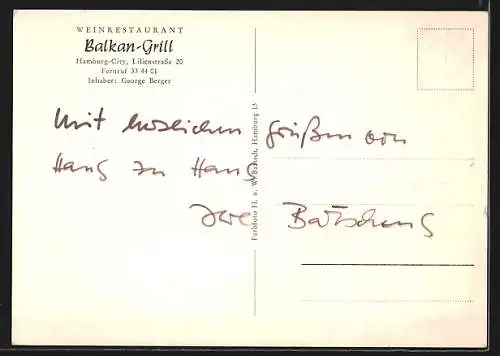 WEINRESTAURANT
Balkan-Grill
Hamburg-City, Lilienstraße 20
Fernruf 33 44 01
Inhaber: George Berger
Mit herzlichen Grüßen von
Haus zu Haus
Farbfoto H. u. W. Hamburg 13